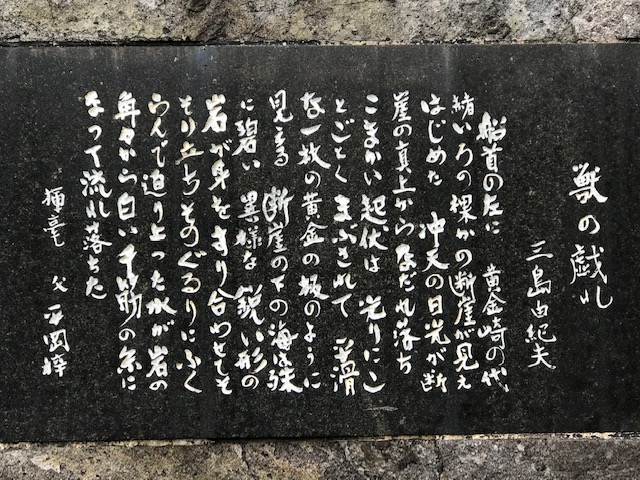 獣の戯れ
三島由紀夫
船首の左に 黄金崎の代
赭いろの裸かの断崖が見え
はじめた 沖天の日光が断
崖の真上からなだれ落ち
こまかい起伏は 光りにこ
とごとく まぶされて 平滑
な一枚の黄金の板のように
見える 断崖の下の海は殊
に碧い 異様な 鋭い形の
岩が身をすり合わせてそ
そり立ち そのぐるりにふく
らんで迫り上った水が岩の
角々から白い千筋の糸に
なって流れ落ちた
揮毫 父 平岡梓